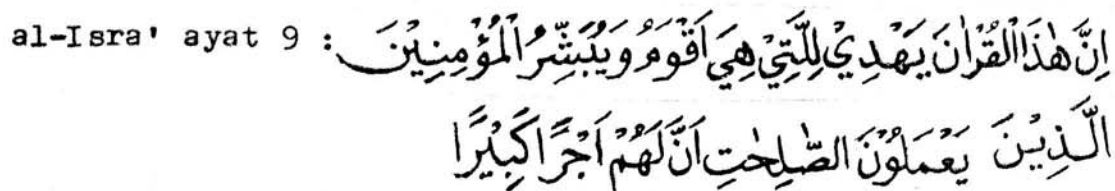 al-Isra' ayat 9 : اِنَّ هٰذَا الْقُرْاٰنَ يَهْدِيْ لِلَّتِيْ هِيَ اَقْوَمُ وَيُبَشِّرُ الْمُؤْمِنِيْنَ
الَّذِيْنَ يَعْمَلُوْنَ الصّٰلِحٰتِ اَنَّ لَهُمْ اَجْرًا كَبِيْرًا